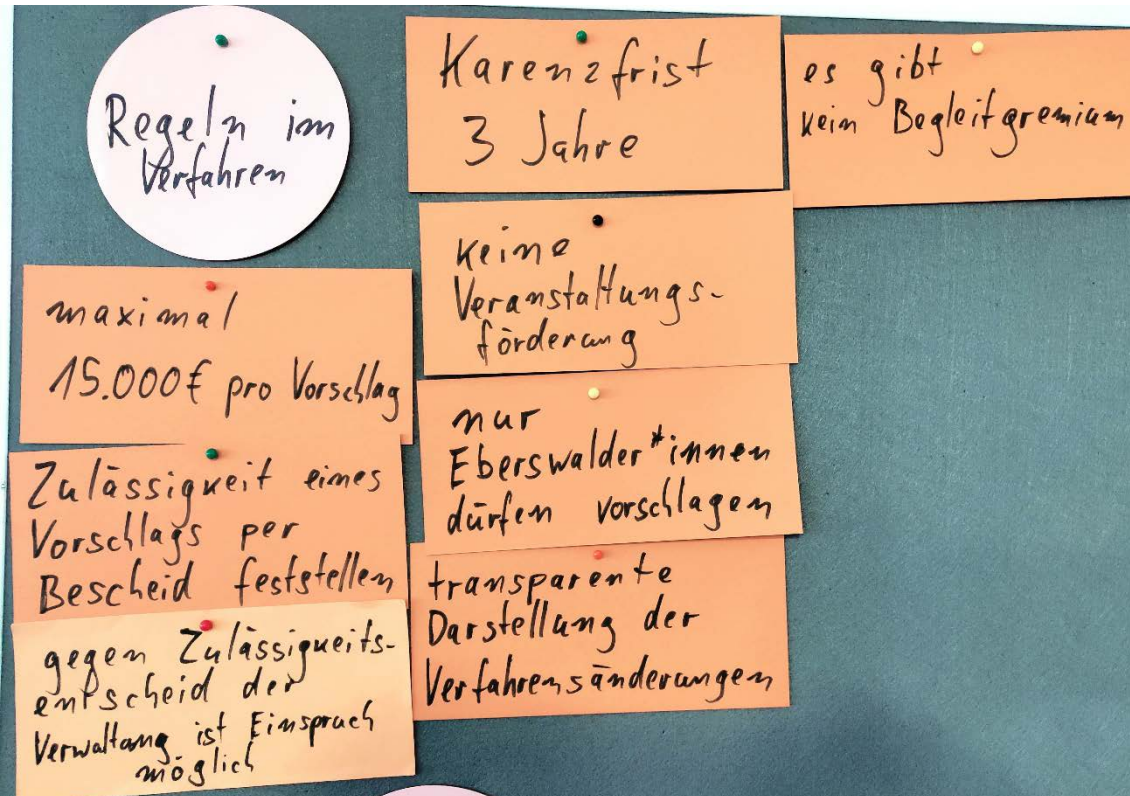 Regeln im
Verfahren
maximal
15.000€ pro Vorschlag
Zulässigkeit eines
Vorschlags per
Bescheid feststellen
gegen Zulässigkeits-
entscheid der
Verwaltung ist Einspruch
möglich
Karenzfrist
3 Jahre
keine
Veranstaltungs-
förderung
nur
Eberswalder*innen
dürfen vorschlagen
transparente
Darstellung der
Verfahrensänderungen
es gibt
kein Begleitgremium